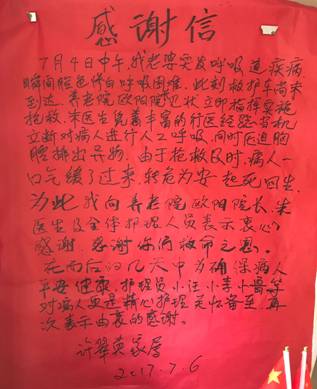 感谢信
7月4日中午,我老婆突发呼吸道疾病,
瞬间脸色惨白呼吸困难,此刻救护车尚未
到达,养老院欧阳院见状立即指挥实施
抢救,朱医生凭着丰富的行医经验当机
立断对病人进行人工呼吸,同时压迫胸
腹排出异物。由于抢救及时,病人一
口气缓了过来,转危为安起死回生。
为此我向养老院欧阳院长、朱
医生及全体护理人员表示衷心
感谢,感谢你们救命之恩。
在而后的几天中为确保病人
平安健康,护理员小汪小李小曾等
对病人更是精心护理关怀备至,再
次表示由衷的感谢。
许翠英家属
2017.7.6